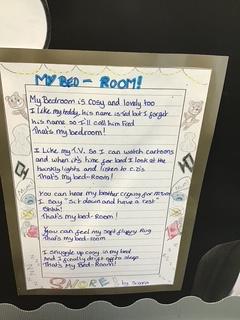 MY BED - ROOM!
My Bedroom is cosy and lovely too
I like my teddy, his name is red but I forget
his name so I'll call him Fred
That's my bedroom!
I like my T.V. so I can watch cartoons
and when it's time for bed I look at the
twinkly lights and listen to c.d's
That's my bed-Room!
You can hear my brother crying for
I say "Sit down and have a rest"
Shhh!
That's my bed-room!
You can feel my soft fluffy Rug
That's my bed-room
I snuggle up cosy in my bed
And I finally drift off to sleep
That's My Bed-Room!
SNORE
by